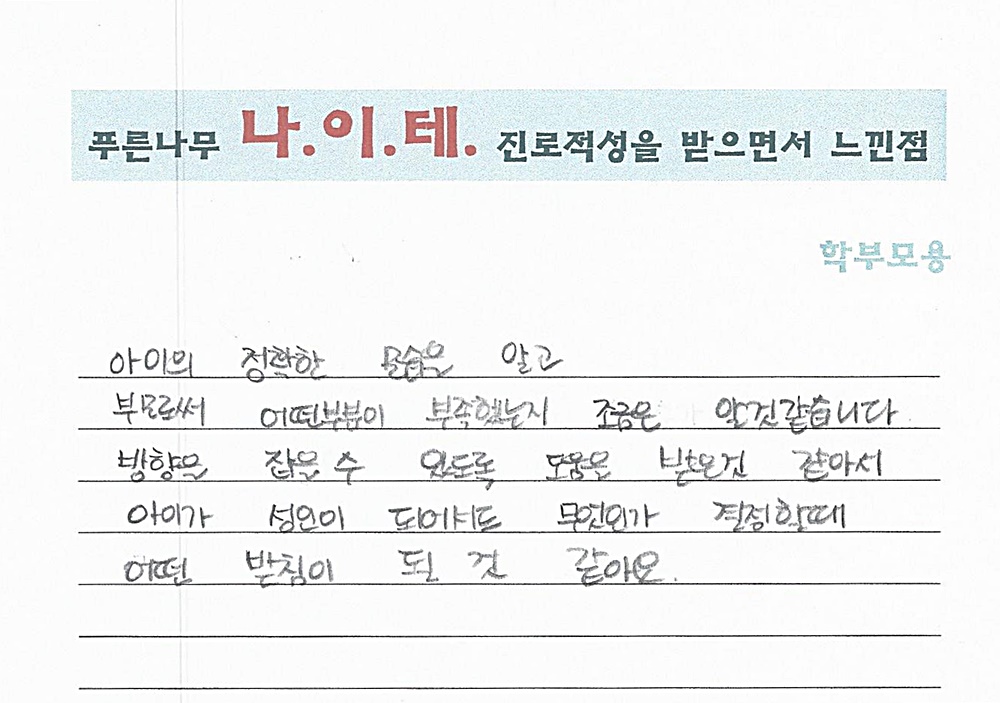 푸른나무 나.이.테. 진로적성을 받으면서 느낀점
학부모용
아이의 정확한 모습을 알고
부모로써 어떤부분이 부족했는지 조금은 알것같습니다
방향을 잡을 수 있도록 도움을 받은것 같아서
아이가 성인이 되어서도 무엇인가 결정할때
어떤 받침이 될 것 같아요.